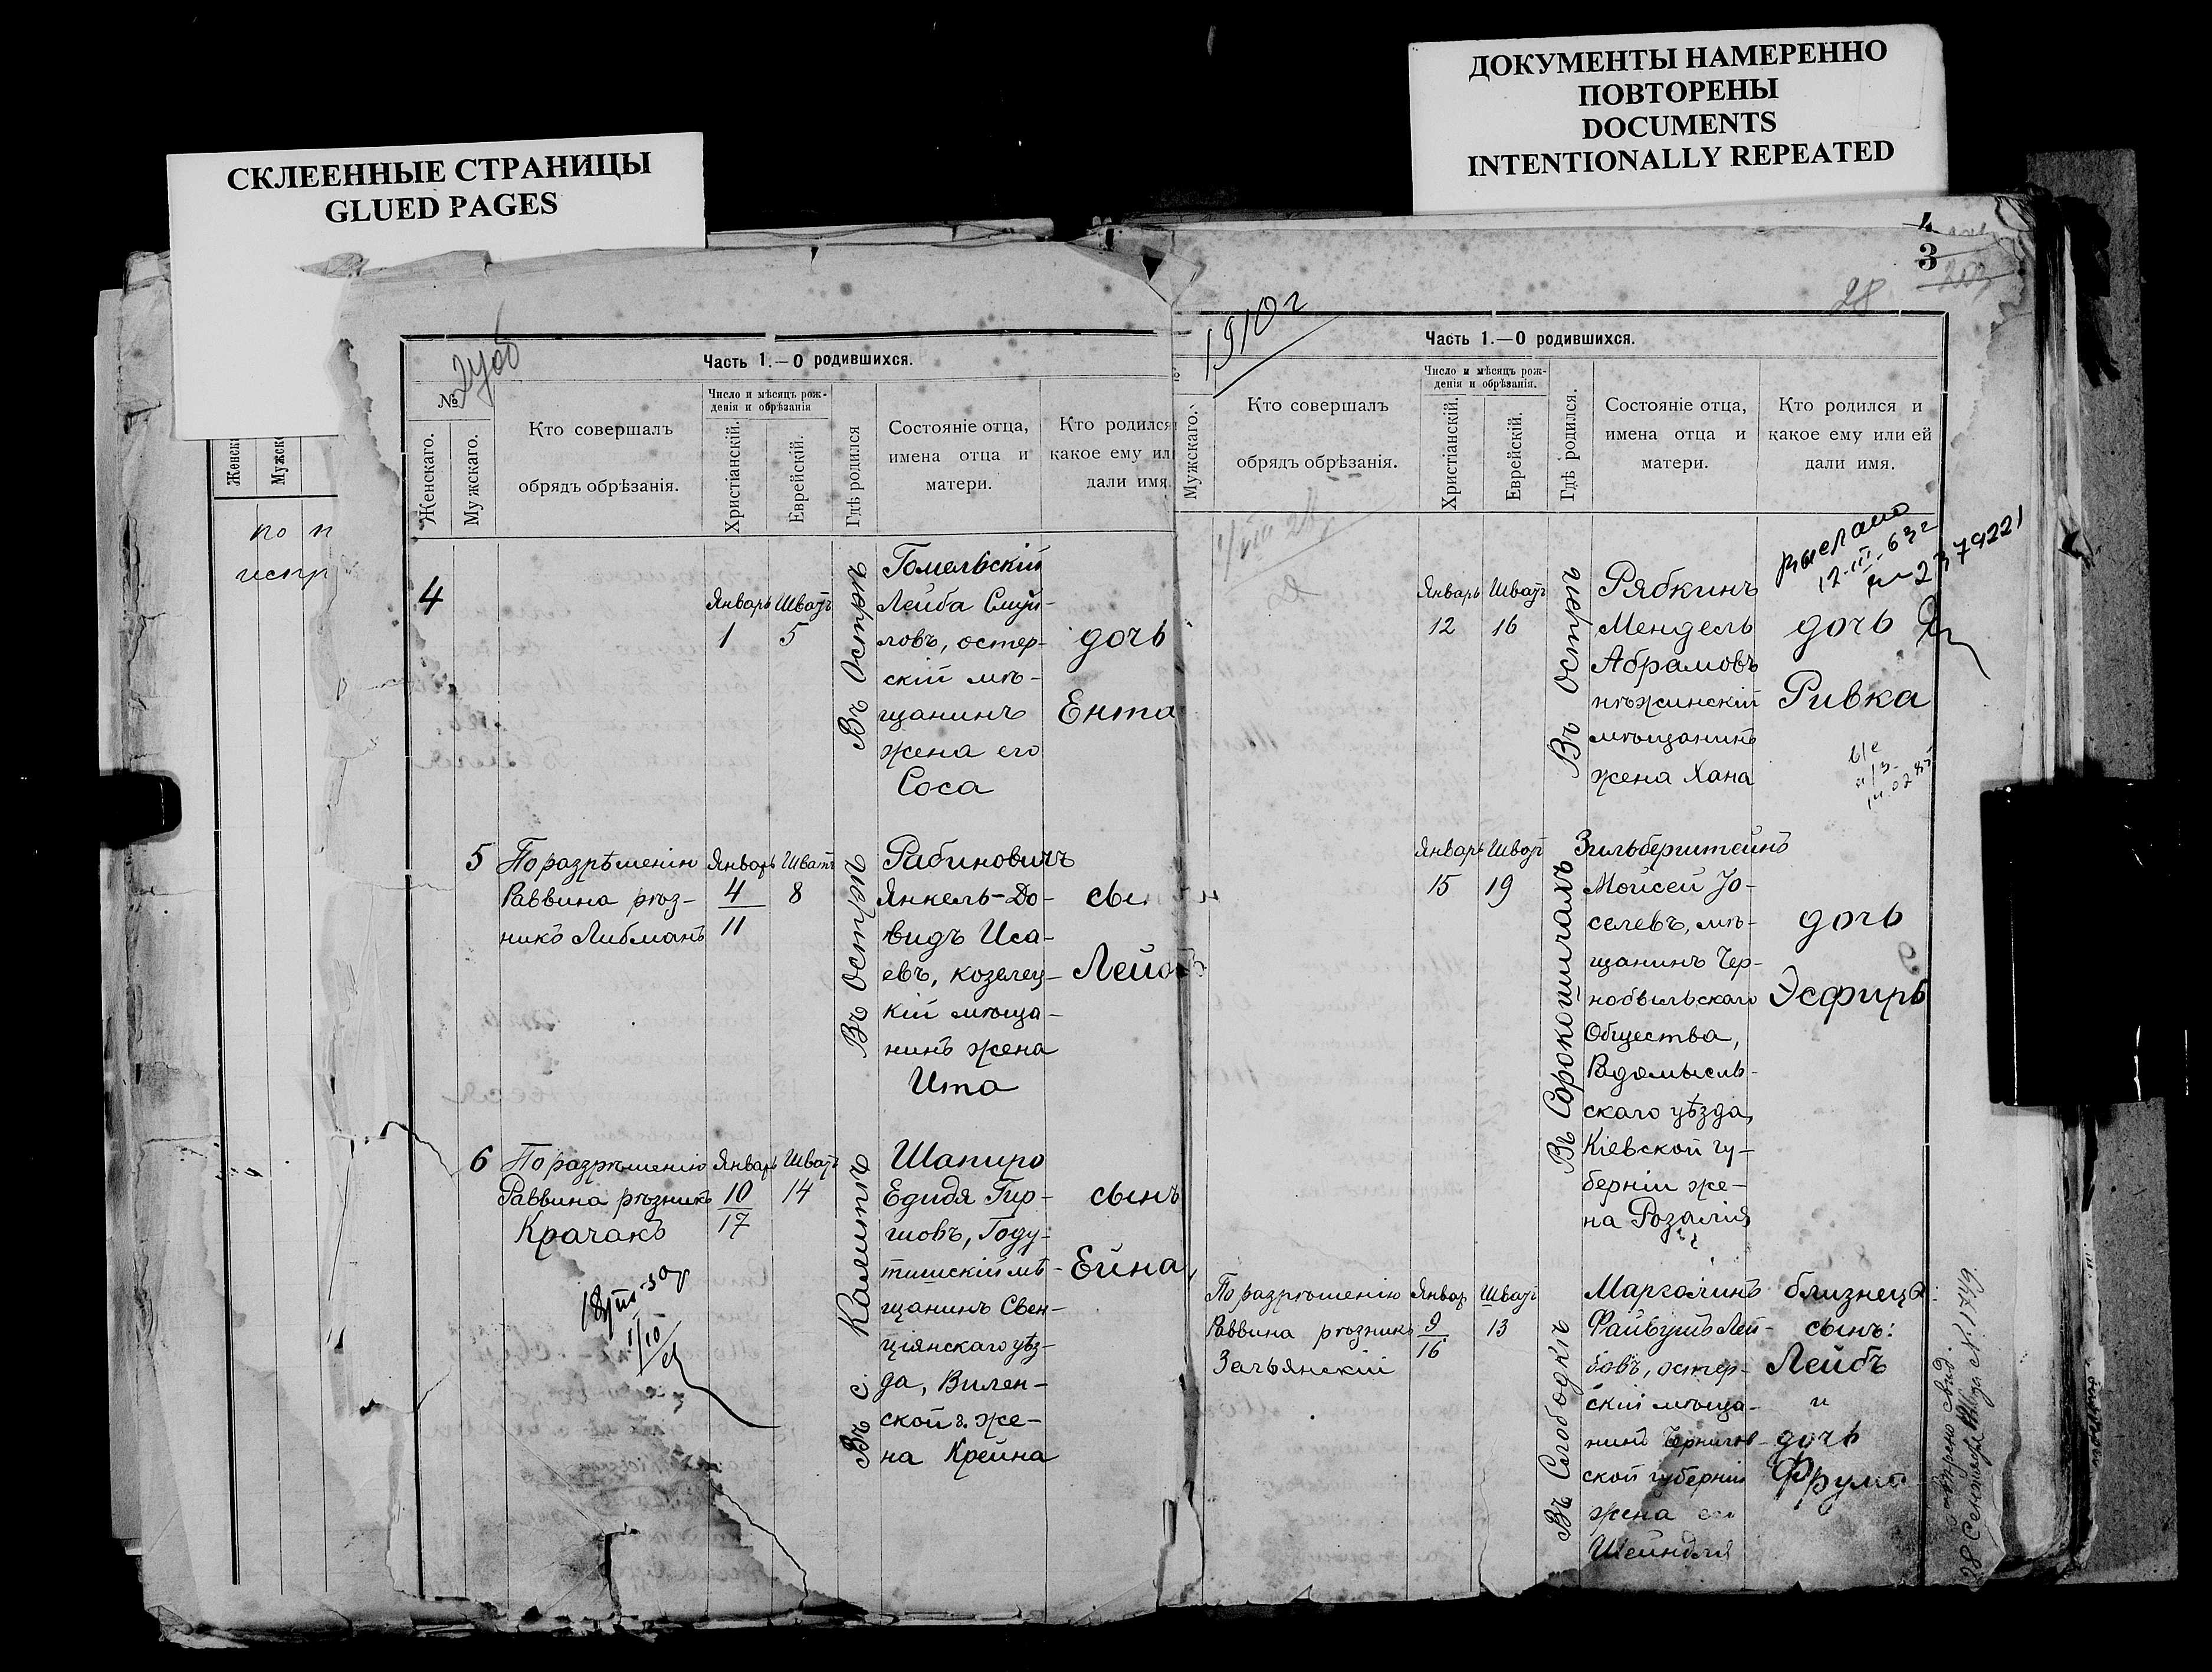 ДОКУМЕНТЫ НАМЕРЕННО
ПОВТОРЕНЫ
DOCUMENTS
INTENTIONALLY REPEATED
СКЛЕЕННЫЕ СТРАНИЦЫ
GLUED PAGES
Женска
Мужско
по п
испр
Часть 1.—О родившихся.
№
Женскаго.
Мужскаго.
Кто совершалъ
обрядъ обрѣзанія.
Число и мѣсяцъ рож-
денія и обрѣзанія
Христіанскій.
Еврейскій.
Гдѣ родился
Состояніе отца,
имена отца и
матери.
Кто родился
какое ему ил
дали имя.
4
Январь Шватъ
1 5
Въ Острѣ
Гомельскій
Лейба Смуй-
ловъ, остер-
скій мѣ-
щанинъ
жена его
Соса
дочь
Ента
5
По разрѣшенію
Раввина рѣз-
никъ Либманъ
Январь Шватъ
4 8
11
Въ Острѣ
Рабиновичъ
Янкель-До-
видъ Иса-
евъ, козелец-
кій мѣща-
нинъ жена
Ита
сы
Лей
6
По разрѣшенію
Раввина рѣзникъ
Крачакъ
Январь Шватъ
10 14
17
Въ с. Калитѣ
Шапиро
Едидя Гир-
шовъ, Году-
тишскій мѣ-
щанинъ Свен-
ціянскаго уѣз-
да, Вилен-
ской г. же-
на Крейна
сынъ
Ейна
4
3
28
1910 г
Часть 1.—О родившихся.
Мужскаго.
Кто совершалъ
обрядъ обрѣзанія.
Число и мѣсяцъ рож-
денія и обрѣзанія.
Христіанскій.
Еврейскій.
Гдѣ родился.
Состояніе отца,
имена отца и
матери.
Кто родился и
какое ему или ей
дали имя.
Январь Шватъ
12 16
Въ Острѣ
Рябкинъ
Мендель
Абрамовъ
нѣжинскій
мѣщанинъ
жена Хана
дочь
Ривка
Январь Шватъ
15 19
Въ Сорокошичахъ
Зильберштейнъ
Мойсей Іо-
селевъ, мѣ-
щанинъ Чер-
нобыльскаго
Общества,
Радомысль-
скаго уѣзда,
Кіевской гу-
берніи же-
на Розалія
дочь
Эсфирь
По разрѣшенію
Раввина рѣзникъ
Зельянскій
Январ Шватъ
9 13
16
Въ Слободкѣ
Марголинъ
Файвушъ Лей-
бовъ, остер-
скій мѣща-
нинъ Чернигов-
ской губерніи
жена его
Шейндля
близнецы:
сынъ:
Лейбъ
и
дочь
Фрума